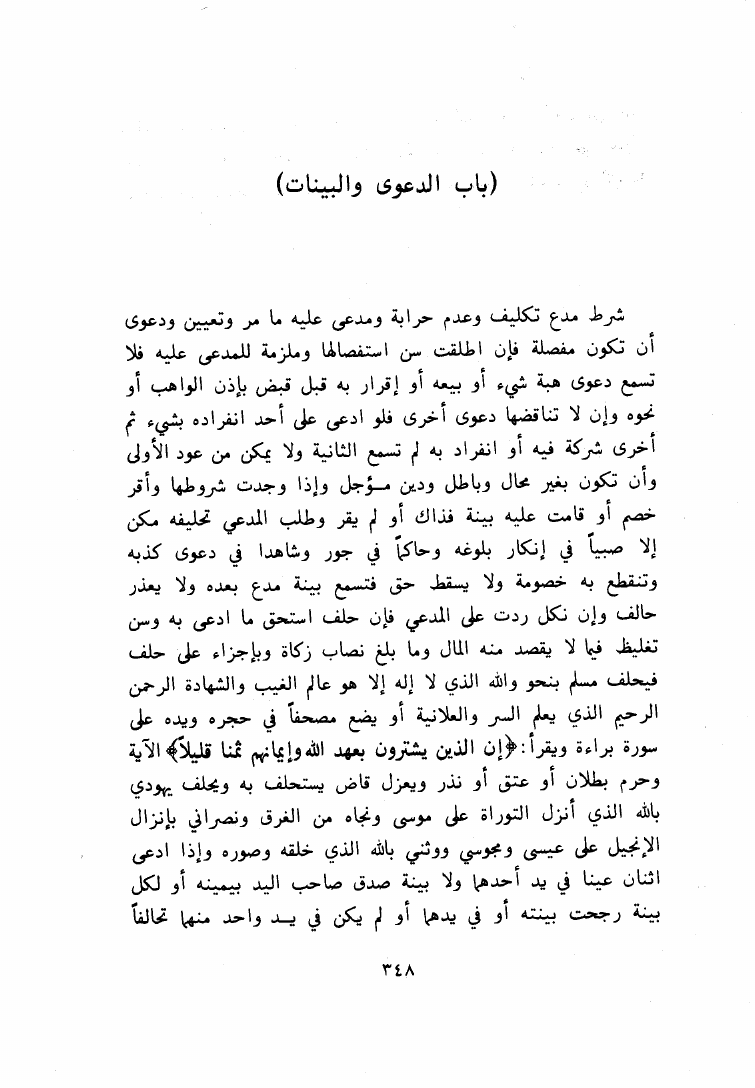 (باب الدعوى والبينات)
شرط مدع تكليف وعدم حرابة ومدعى عليه ما مر وتعيين ودعوى
أن تكون مفصلة فإن اطلقت سن استفصالها وملزمة للمدعى عليه فلا
تسمع دعوى هبة شيء أو بيعه أو إقرار به قبل قبض بإذن الواهب أو
نحوه وإن لا تناقضها دعوى أخرى فلو ادعى على أحد انفراده بشيء ثم
أخرى شركة فيه أو انفراد به لم تسمع الثانية ولا يمكن من عود الأولى
وأن تكون بغير محال وباطل ودين مـؤجل وإذا وجدت شروطها وأقر
خصم أو قامت عليه بينة فذاك أو لم يقر وطلب المدعي تحليفه مكن
إلا صبياً في إنكار بلوغه وحاكماً في جور وشاهدا في دعوى كذبه
وتنقطع به خصومة ولا يسقط حق فتسمع بينة مدع بعده ولا يعذر
حالف وإن نكل ردت على المدعي فإن حلف استحق ما ادعى به وسن
تغليظ فيما لا يقصد منه المال وما بلغ نصاب زكاة وبإجزاء على حلف
فيحلف مسلم بنحو والله الذي لا إله إلا هو عالم الغيب والشهادة الرحمن
الرحيم الذي يعلم السر والعلانية أو يضع مصحفاً في حجره ويده على
سورة براءة ويقرأ: ﴿إن الذين يشترون بعهد الله وإيمانهم ثمنا قليلاً﴾ الآية
وحرم بطلان أو عتق أو نذر ويعزل قاض يستحلف به ويحلف يهودي
بالله الذي أنزل التوراة على موسى ونجاه من الغرق ونصراني بإنزال
الإنجيل على عيسى ومجوسي ووثني بالله الذي خلقه وصوره وإذا ادعى
اثنان عينا في يد أحدهما ولا بينة صدق صاحب اليد بيمينه أو لكل
بينة رجحت بينته أو في يدهما أو لم يكن في يــد واحد منهما تحالفاً
٣٤٨